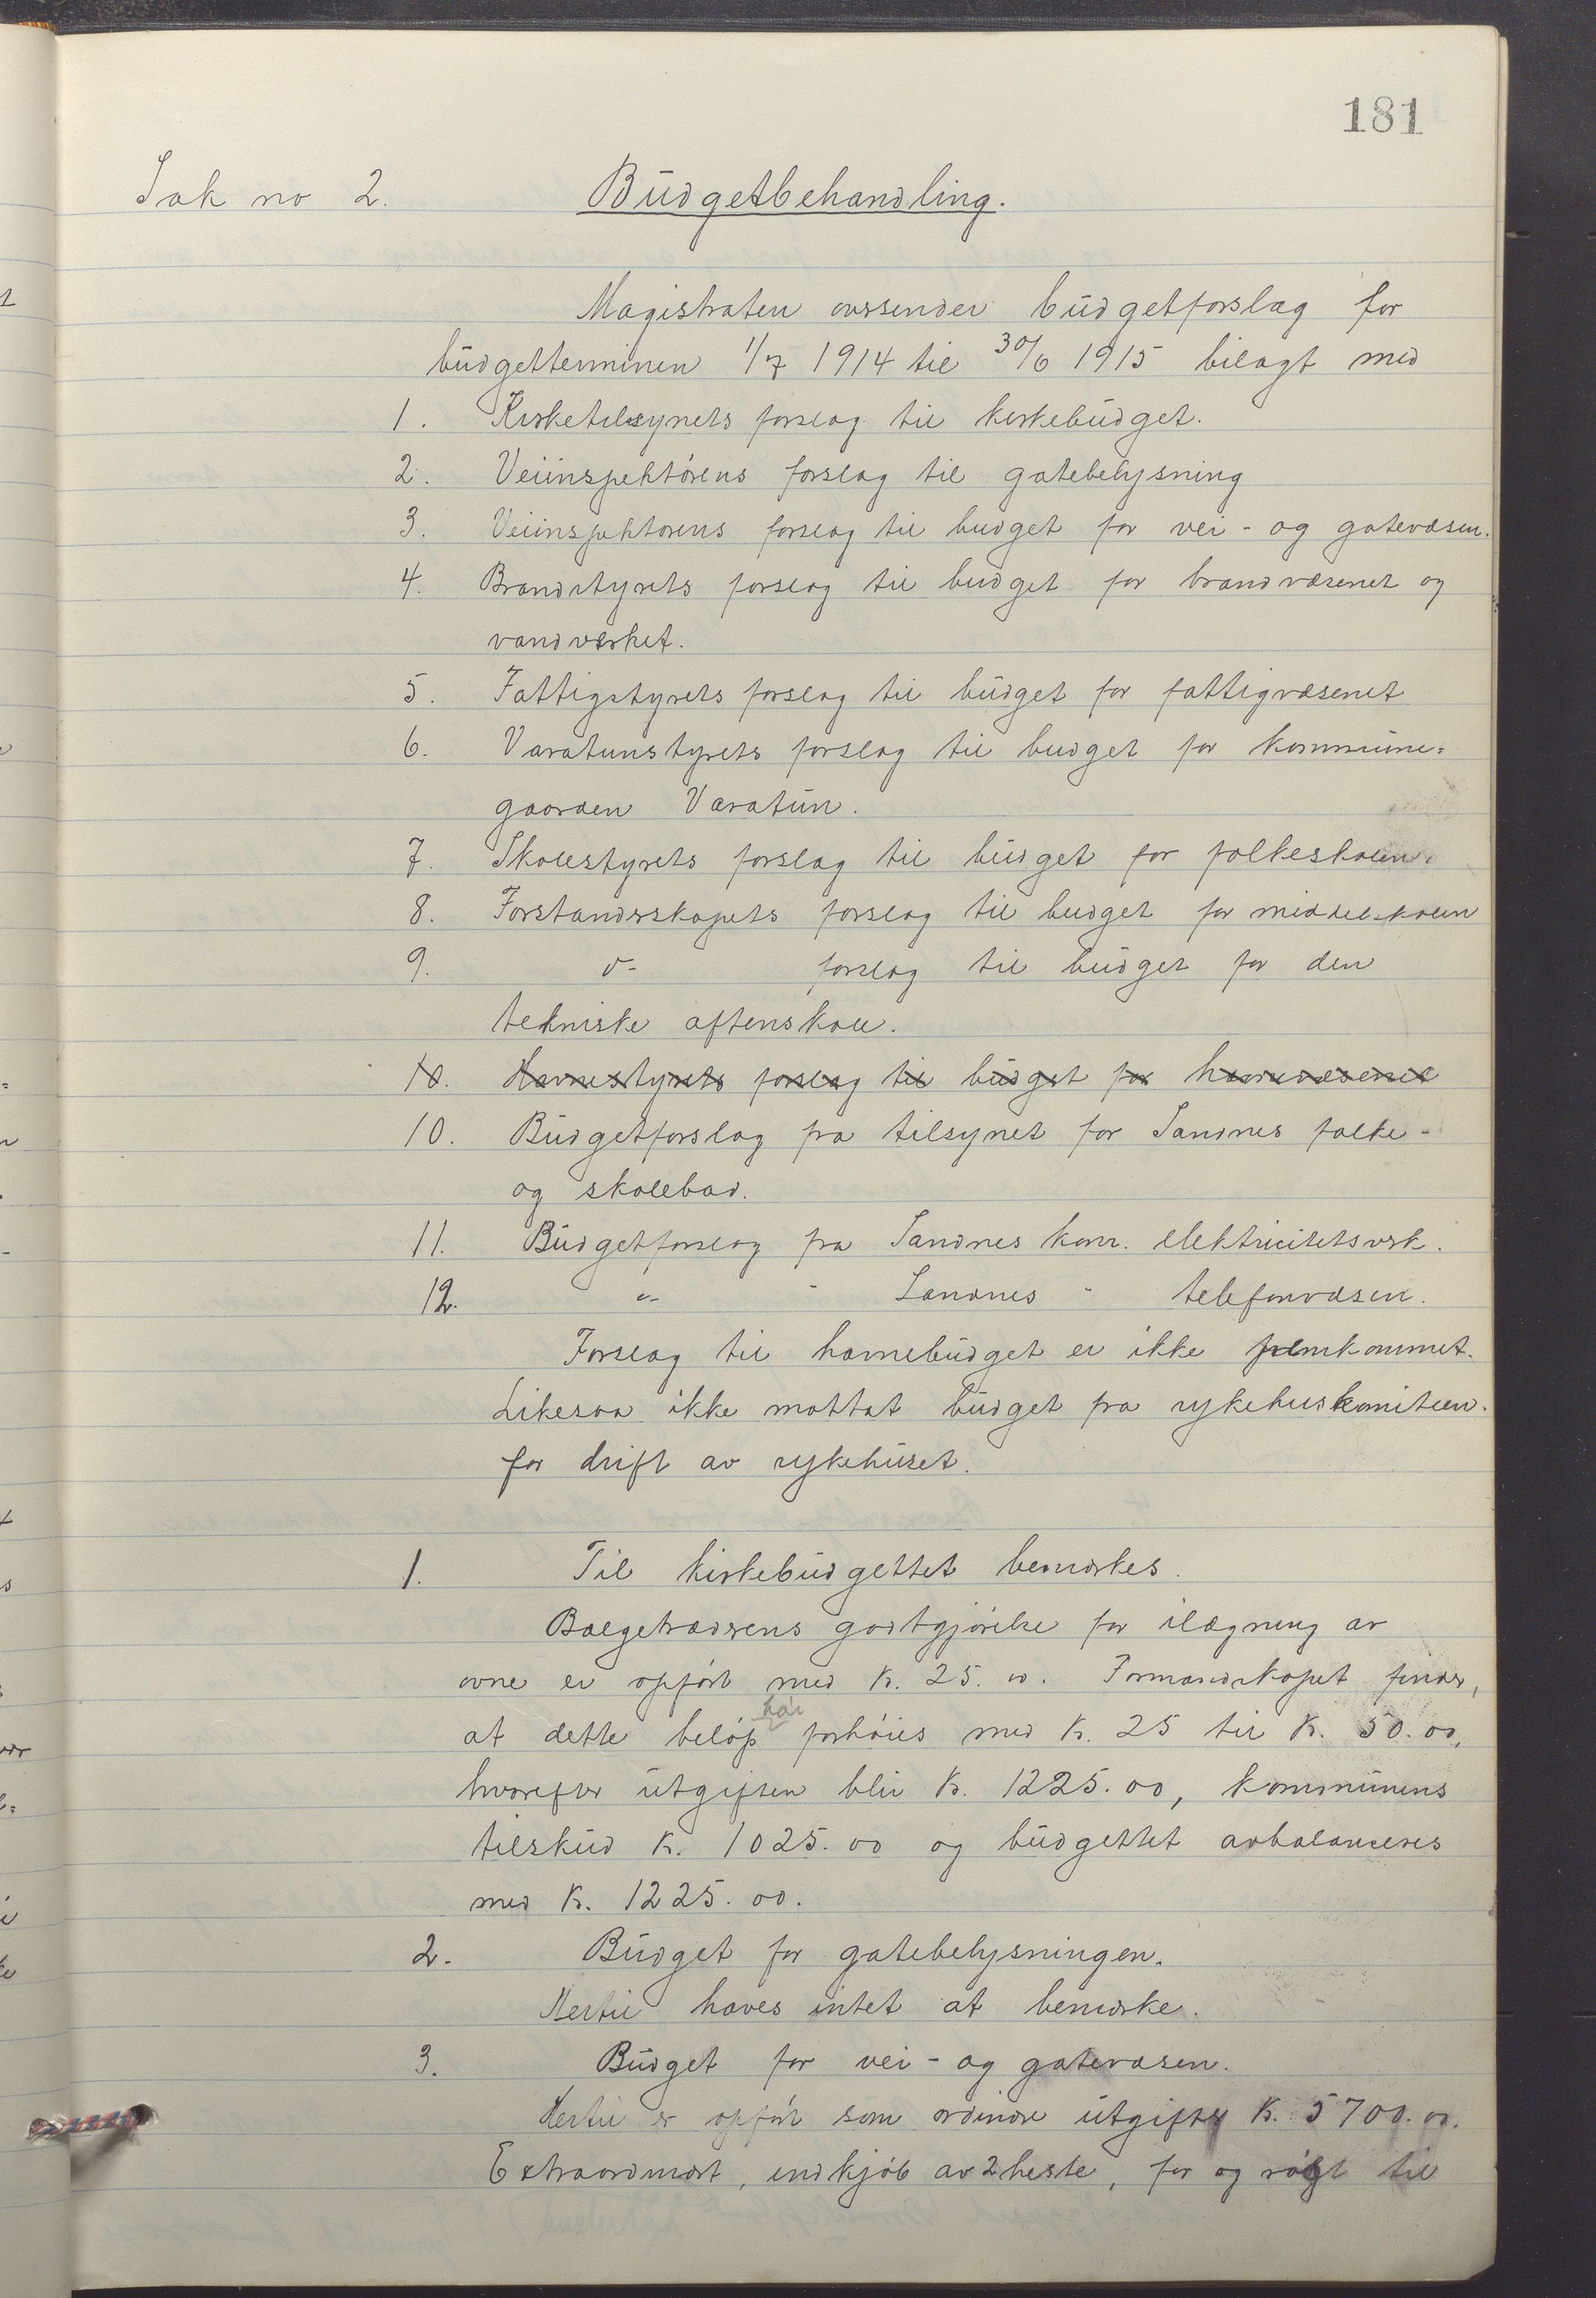 181
Sak no 2. Budgetbehandling.
Magistraten oversender budgetforslag for
budgetterminen 1/7 1914 til 30/6 1915 bilagt med
1. Kirketilsynets forslag til kirkebudget.
2. Veiinspektørens forslag til gatebelysning
3. Veiinspektørens forslag til budget for vei- og gatevæsen.
4. Brandstyrets forslag til budget for brandvæsenet og
vandverket.
5. Fattigstyrets forslag til budget for fattigvæsenet
6. Varatunstyrets forslag til budget for kommune=
gaarden Varatun.
7. Skolestyrets forslag til budget for folkeskolen.
8. Forstanderskapets forslag til budget for middelskolen
9. d- forslag til budget for den
tekniske aftenskole.
10. Havnestyrets forslag til budget for havnevæsenet
10. Budgetforslag fra tilsynet for Sandnes folke-
og skolebad.
11. Budgetforslag fra Sandnes kom. elektricitetsverk.
12. d- " Sandnes " telefonvæsen.
Forslag til havnebudget er ikke fremkommet.
Likesaa ikke mottat budget fra sykehuskomiteen.
for drift av sykehuset.
1. Til kirkebudgettet bemerkes.
Bælgetræderens godtgjørelse for ilægning av
ovne er opført med kr. 25.00. Formandskapet finder,
at dette beløp bør forhøies med kr. 25 til kr. 50.00,
hvorefter utgiften blir kr. 1225.00, kommunens
tilskud kr. 1025.00 og budgettet avbalanceres
med kr. 1225.00.
2. Budget for gatebelysningen.
Hertil haves intet at bemerke.
3. Budget for vei- og gatevæsen.
Hertil er opført som ordinære utgifter kr. 5700.00.
Extraordinært, indkjøb av 2 heste, for og røgt til